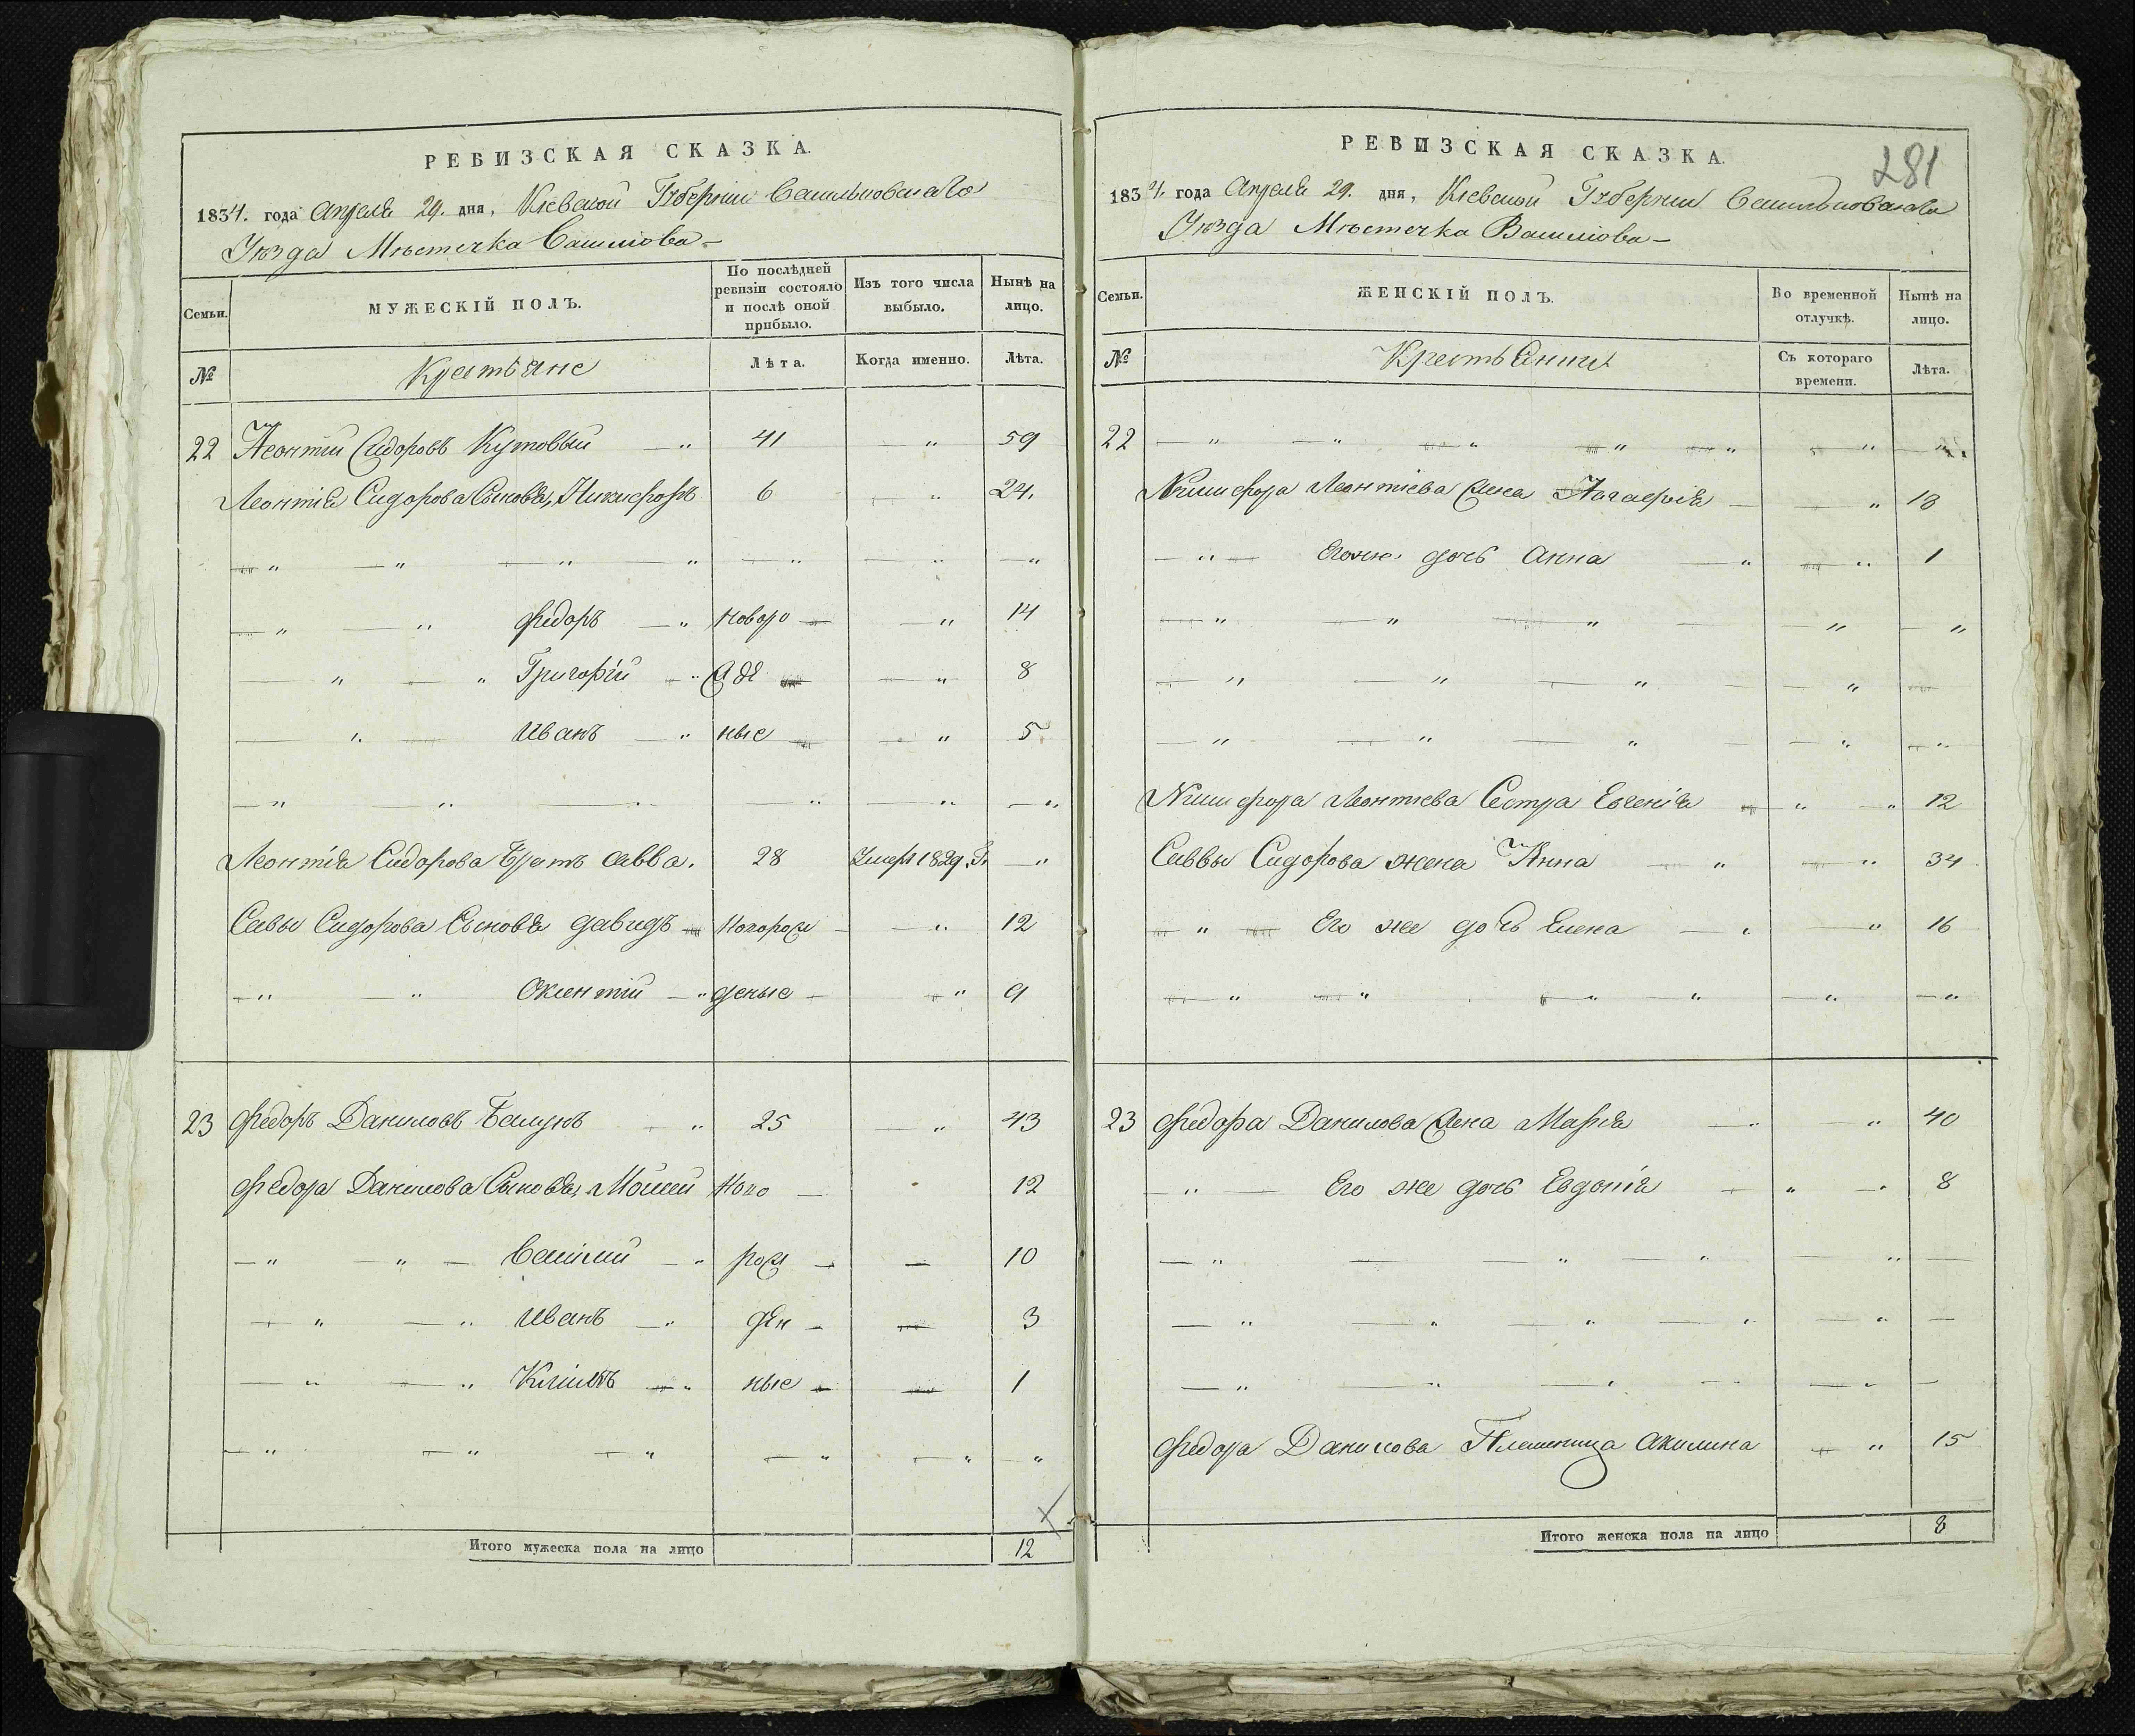 РЕВИЗСКАЯ СКАЗКА.
1834. года Апреля 29. дня, Кіевской Губерніи Васильковскаго
Уѣзда Мѣстечка Василіова
Семьи.
МУЖЕСКІЙ ПОЛЪ.
По послѣдней ревизіи состояло и послѣ оной прибыло.
Изъ того числа выбыло.
Нынѣ на лицо.
№
Крестьяне
Лѣта.
Когда именно.
Лѣта.
22 Леонтій Сидоровъ Кутовый " 41 " 59
Леонтія Сидорова Сыновья, Никифоръ 6 " 24.
" " " " " " "
" " Федоръ " Новоро " 14
" " Григорій " жде " 8
" Иванъ " ные " 5
" " " " " "
Леонтія Сидорова Братъ Савва. 28 Умеръ 1829. Г. "
Савы Сидорова Сыновья Давидъ Новорож " 12
" " Окентій " деные " 9
23 Федоръ Даниловъ " 25 " 43
Федора Данилова Сыновья, Мойсей Ново 12
" " Василий " рож 10
" " Иванъ " ден 3
" " Климъ " ные 1
" " " " " "
Итого мужеска пола на лицо 12
281
РЕВИЗСКАЯ СКАЗКА.
1834. года Апреля 29. дня, Кіевской Губерніи Васильковскаго
Уѣзда Мѣстечка Василіова
Семьи.
ЖЕНСКІЙ ПОЛЪ.
Во временной отлучкѣ.
Нынѣ на лицо.
№
Крестьянки
Съ котораго времени.
Лѣта.
22 " " " " " " "
Никифора Леонтіева жена " 18
" Егоже дочь Анна " " 1
" " " " "
" " " "
" " " " "
Никифора Леонтиева Сестра Евгенія " " 12
Саввы Сидорова жена Анна " " 34
" Его же дочь Елена " " 16
" " " " " "
23 Федора Данилова жена Марія " " 40
" Его же дочь Евдокія " " 8
" " " "
" " " " "
" " " "
Федора Данилова Племеница Акилина " 15
Итого женска пола на лицо 8